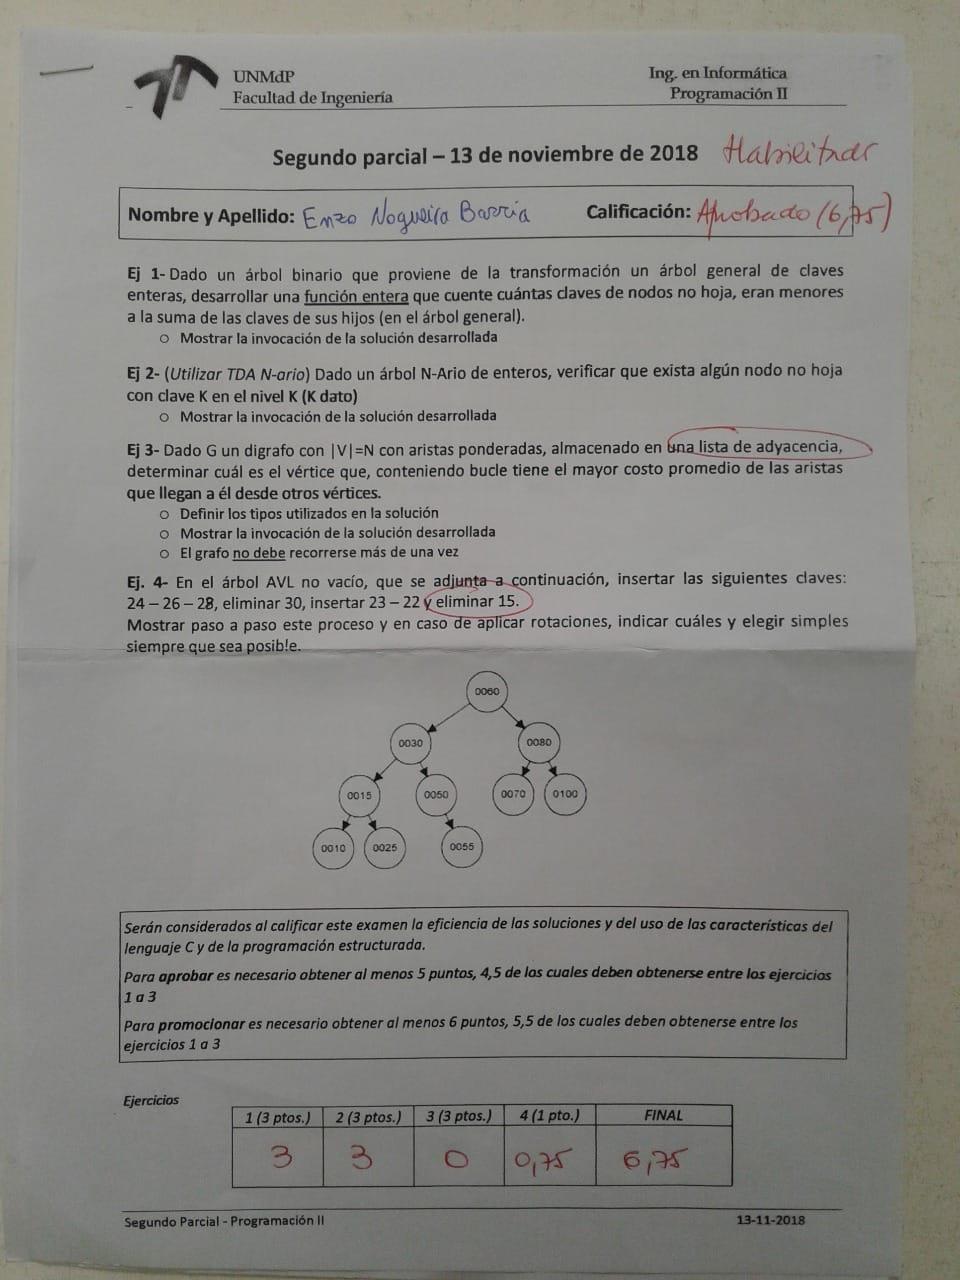 UNMdP
Facultad de Ingeniería
Ing. en Informática
Programación II
Segundo parcial – 13 de noviembre de 2018 Habilitado
Nombre y Apellido: Enzo Nogueira Barría Calificación: Aprobado (6,75)
Ej 1- Dado un árbol binario que proviene de la transformación un árbol general de claves
enteras, desarrollar una función entera que cuente cuántas claves de nodos no hoja, eran menores
a la suma de las claves de sus hijos (en el árbol general).
o Mostrar la invocación de la solución desarrollada
Ej 2- (Utilizar TDA N-ario) Dado un árbol N-Ario de enteros, verificar que exista algún nodo no hoja
con clave K en el nivel K (K dato)
o Mostrar la invocación de la solución desarrollada
Ej 3- Dado G un digrafo con |V|=N con aristas ponderadas, almacenado en una lista de adyacencia,
determinar cuál es el vértice que, conteniendo bucle tiene el mayor costo promedio de las aristas
que llegan a él desde otros vértices.
o Definir los tipos utilizados en la solución
o Mostrar la invocación de la solución desarrollada
o El grafo no debe recorrerse más de una vez
Ej. 4- En el árbol AVL no vacío, que se adjunta a continuación, insertar las siguientes claves:
24 – 26 – 28, eliminar 30, insertar 23 – 22 y eliminar 15.
Mostrar paso a paso este proceso y en caso de aplicar rotaciones, indicar cuáles y elegir simples
siempre que sea posible.
0060
0030 0080
0015 0050 0070 0100
0010 0025 0055
Serán considerados al calificar este examen la eficiencia de las soluciones y del uso de las características del
lenguaje C y de la programación estructurada.
Para aprobar es necesario obtener al menos 5 puntos, 4,5 de los cuales deben obtenerse entre los ejercicios
1 a 3
Para promocionar es necesario obtener al menos 6 puntos, 5,5 de los cuales deben obtenerse entre los
ejercicios 1 a 3
Ejercicios
1 (3 ptos.) 2 (3 ptos.) 3 (3 ptos.) 4 (1 pto.) FINAL
3 3 0 0,75 6,75
Segundo Parcial - Programación II 13-11-2018